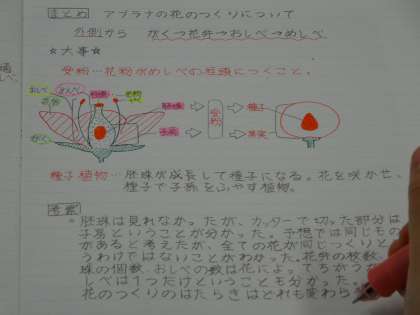 まとめ アブラナの花のつくりについて
外側から がく→花弁→おしべ→めしべ
☆大事☆
受粉…花粉がめしべの柱頭につくこと。
おしべ
花弁
柱頭
がく
胚珠
子房
受粉
種子
果実
種子植物…胚珠が成長して種子になる。花を咲かせ、
種子で子孫をふやす植物。
考察
胚珠は見れなかったが、カッターで切った部分は
子房ということが分かった。予想では同じもの
があると考えたが、全ての花が同じつくりと
うわけではないことがわかった。花弁の枚数、
珠の個数、おしべの数は花によってちがうが
しべは1つだけということも分かった。
花のつくりのはたらきはどれも変わら